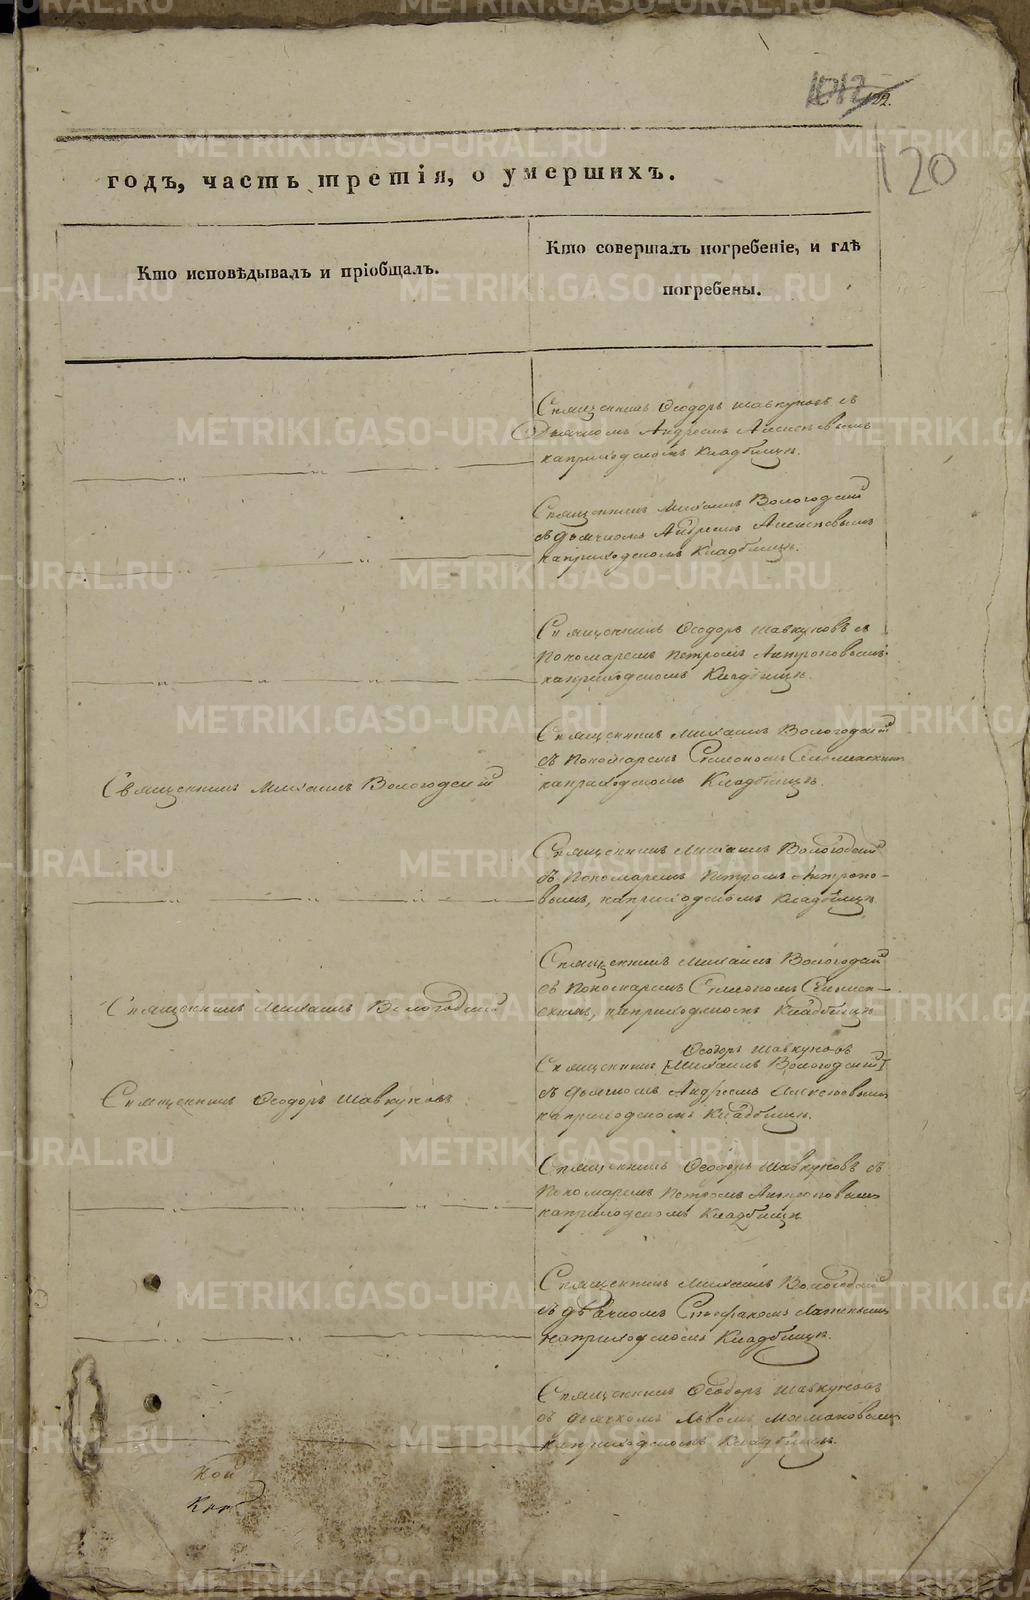 122.
120
годъ, часть третія, о умершихъ.
Кто исповѣдывалъ и пріобщалъ.
Кто совершалъ погребеніе, и гдѣ
погребены.
Священникъ Ѳеодоръ Шавкуновъ съ
Дьячкомъ Андреемъ Алексѣевымъ
наприходскомъ Кладбищѣ.
Священникъ Михаилъ Вологодскій
съ дьячкомъ Андреемъ Алексѣевымъ
наприходскомъ Кладбищѣ.
Священникъ Ѳеодоръ Шавкуновъ съ
Пономаремъ Петромъ Антроповымъ
наприходскомъ Кладбищѣ.
Священникъ Михаилъ Вологодскій
Священникъ Михаилъ Вологодскій
съ Пономаремъ Симеономъ
наприходскомъ Кладбищѣ.
Священникъ Михаилъ Вологодскій
съ Пономаремъ Петромъ Антропо-
вымъ, наприходскомъ Кладбищѣ.
Священникъ Михаилъ Вологодскій
Священникъ Михаилъ Вологодскій
съ Пономаремъ Симеономъ
наприходскомъ Кладбищѣ
Священникъ Ѳеодоръ Шавкуновъ
Ѳеодоръ Шавкуновъ
Священникъ [Михаилъ Вологодскій]
съ дьячкомъ Андреемъ Алексѣевымъ
наприходскомъ Кладбищѣ.
Священникъ Ѳеодоръ Шавкуновъ съ
Пономаремъ Петромъ Антроповымъ
наприходскомъ Кладбищѣ
Священникъ Михаилъ Вологодскій
съ дьячкомъ Стефаномъ
наприходскомъ Кладбищѣ.
Священникъ Ѳеодоръ Шавкуновъ
съ дьячкомъ Львомъ
наприходскомъ Кладбищѣ.
METRIKI.GASO-URAL.RU